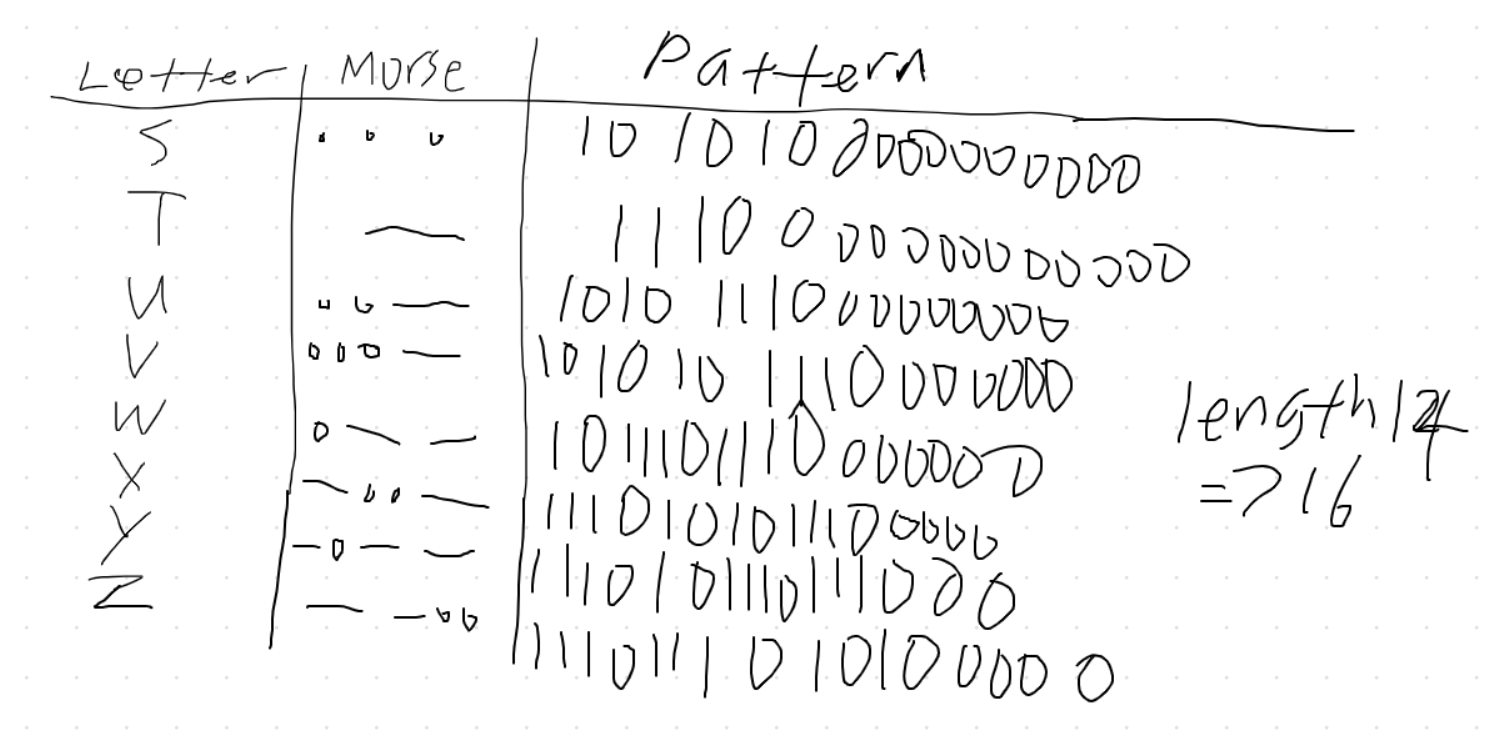 Letter Morse Pattern
S ... 1010100000000000
T — 1110000000000000
U ..— 1010111000000000
V ...— 1010101110000000
W .—— 1011101110000000
X —..— 1110101011100000
Y —.—— 1110101110111000
Z ——.. 1110111010100000
length 14
=> 16